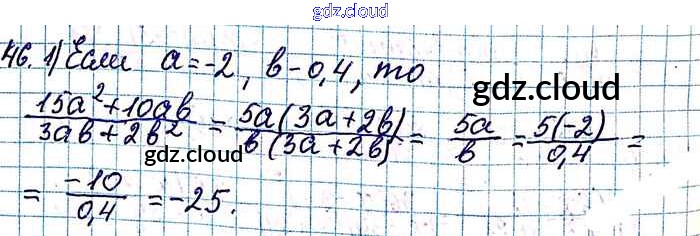 gdz.cloud
46. 1) Если a = -2, b - 0,4, то
gdz.cloud
(15a² + 10ab)/(3ab + 2b²) = (5a(3a + 2b))/(b(3a + 2b)) = 5a/b = (5(-2))/0,4 =
gdz.cloud
= -10/0,4 = -25.